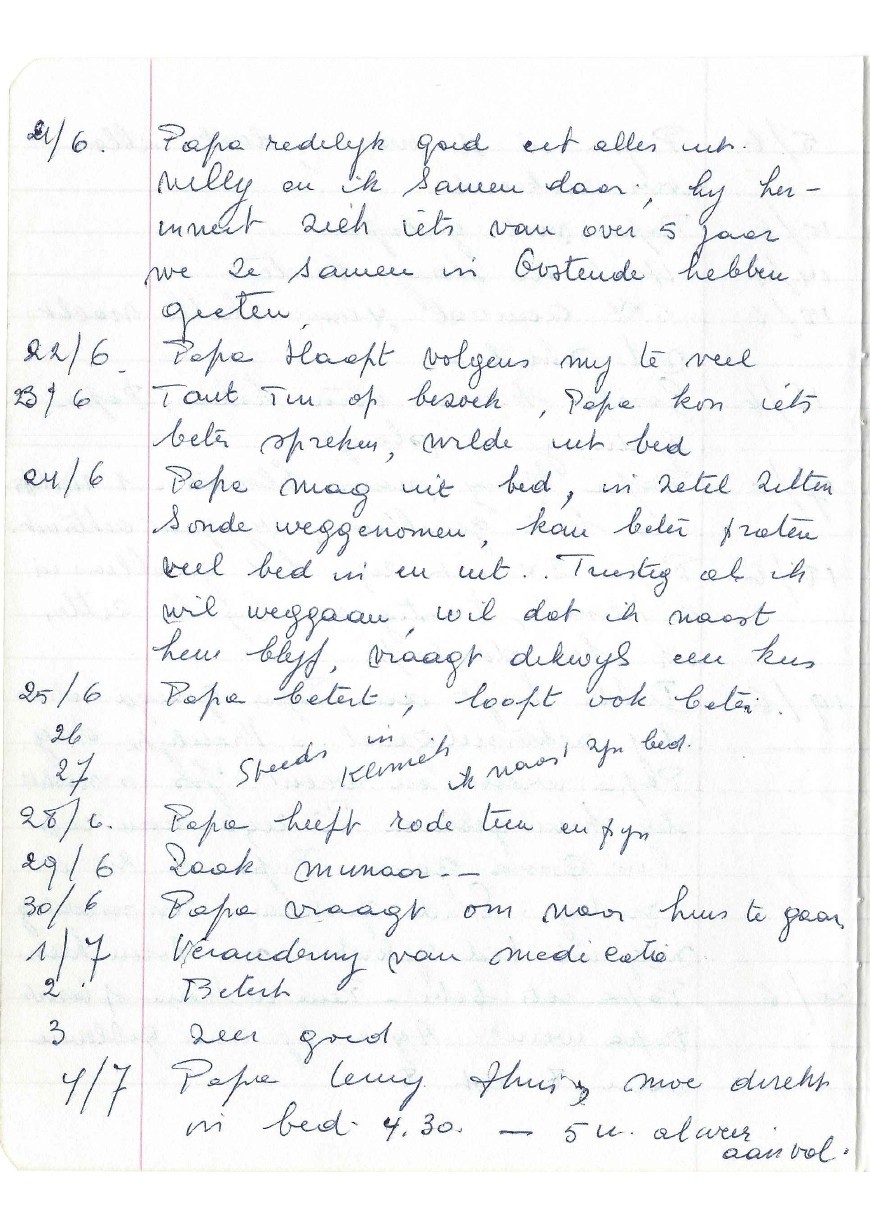 21/6. Papa redelijk goed eet alles uit.
Willy en ik samen daar, hij her-
innert zich iets van over 5 jaar
we 2e samen in Oostende hebben
geeten,
22/6. Papa slaapt volgens mij te veel
23/6 Tant Tin op bezoek, Papa kon iets
beter spreken, wilde uit bed
24/6 Papa mag uit bed, in zetel zitten
Sonde weggenomen, kan beter praten
veel bed in en uit.. Triestig als ik
wil weggaan, wil dat ik naast
hem blijf, vraagt dikwijls een kus
25/6 Papa betert, loopt ook beter.
26
27 Steeds in kliniek ik naast zijn bed.
28/6. Papa heeft rode teen en pijn
29/6 Zoek
30/6 Papa vraagt om naar huis te gaan
1/7 Verandering van medicatie
2 Betert
3 zeer goed
4/7 Papa terug thuis, moe direkt
in bed. 4.30. — 5 u. alweer
aanval.